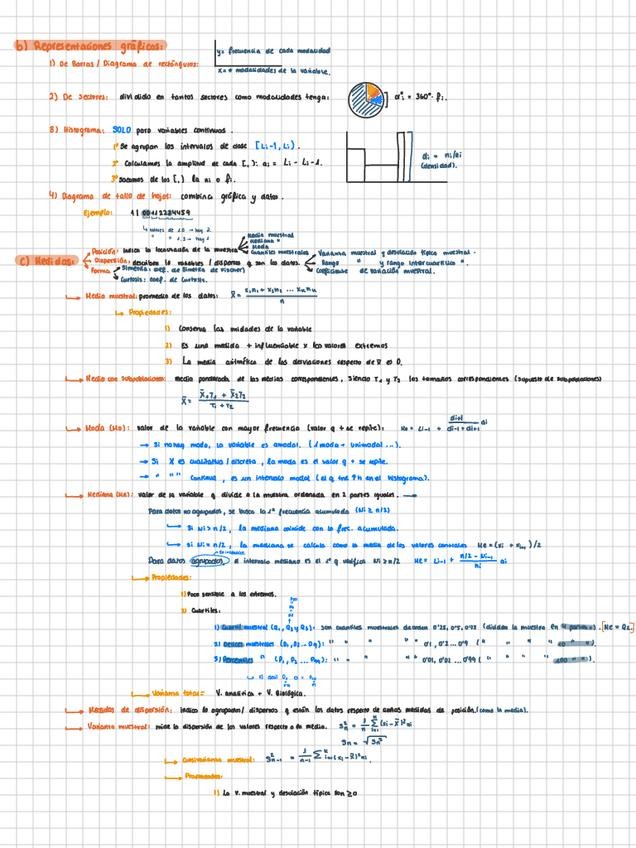 b) Representaciones gráficas:
y= frecuencia de cada modalidad
x= modalidades de la variable.
1) De Barras / Diagrama de rectángulos:
2) De sectores: dividido en tantos sectores como modalidades tenga: αi = 360º · fi.
3) Histograma: SOLO para variables continuas.
1º Se agrupan los intervalos de clase [Li-1, Li).
2º Calculamos la amplitud de cada [,): ai = Li - Li-1.
3º Sacamos de los [,) la ni o fi.
di = ni/ai
(densidad).
4) Diagrama de tallo de hojas: combina gráfica y datos.
Ejemplo:
c) Medidas:
Posición: indica la localización de la muestra
Media muestral
Mediana "
Moda "
Cuantiles muestrales
Dispersión: describen la variables / dispersos q son los datos.
Varianza muestral y desviación típica muestral.
Rango " y rango intercuartílico ".
Coeficiente de variación muestral.
Forma
Simetría: coef. de Simetría de Fischer)
Curtosis: coef. de Curtosis.
Media muestral: promedio de los datos: x̄ = x1n1 + x2n2 ... xknk / n
Propiedades:
1) Conserva las unidades de la variable
2) Es una medida + influenciable x los valores extremos
3) La media aritmética de las desviaciones respecto de x̄ es 0.
Media con subpoblaciones: media ponderada de las medias correspondientes, siendo T1 y T2 los tamaños correspondientes (supuesto de subpoblaciones)
Moda (Mo): valor de la variable con mayor frecuencia (valor q + se repite):
Si no hay moda, la variable es amodal. (1 moda → unimodal...).
Si X es cualitativa / discreta, la moda es el valor q + se repite.
" " " continua, es un intervalo modal (el q tne ↑h en el histograma).
Mediana (Me): valor de la variable q divide a la muestra ordenada en 2 partes iguales.
Para datos no agrupados, se busca la 1ª frecuencia acumulada (Ni ≥ n/2)
si Ni > n/2, la mediana coincide con la frec. acumulada.
si Ni = n/2, la mediana se calcula como la media de los valores centrales Me = (xi + xi+1) / 2
Para datos agrupados el intervalo mediano es el 1º q verifica Ni ≥ n/2 Me = Li-1 + n/2 - Ni-1 / ni ai
Propiedades:
1) Poco sensible a los extremos.
2) Cuartiles:
1) Cuartil muestral (Q1, Q2 y Q3): son cuantiles muestrales de orden 0'25, 0'5, 0'75 (dividen la muestra en 4 partes =). [Me = Q2]
2) Deciles muestrales (D1, D2 ... D9): " " " " 0'1, 0'2 ... 0'9 ( " " " " 10 " =).
3) Percentiles " (P1, P2 ... P99): " " " " 0'01, 0'02 ... 0'99 ( " " " " 100 " =).
Varianza total= V. analítica + V. Biológica.
Medidas de dispersión: indica lo agrupados / dispersos q están los datos respecto de ambas medidas de posición (como la media).
Varianza muestral: mide la dispersión de los valores respecto a la media.
Sn = √Sn²
Cuasivarianza muestral:
Propiedades:
1) La V. muestral y desviación típica son ≥ 0